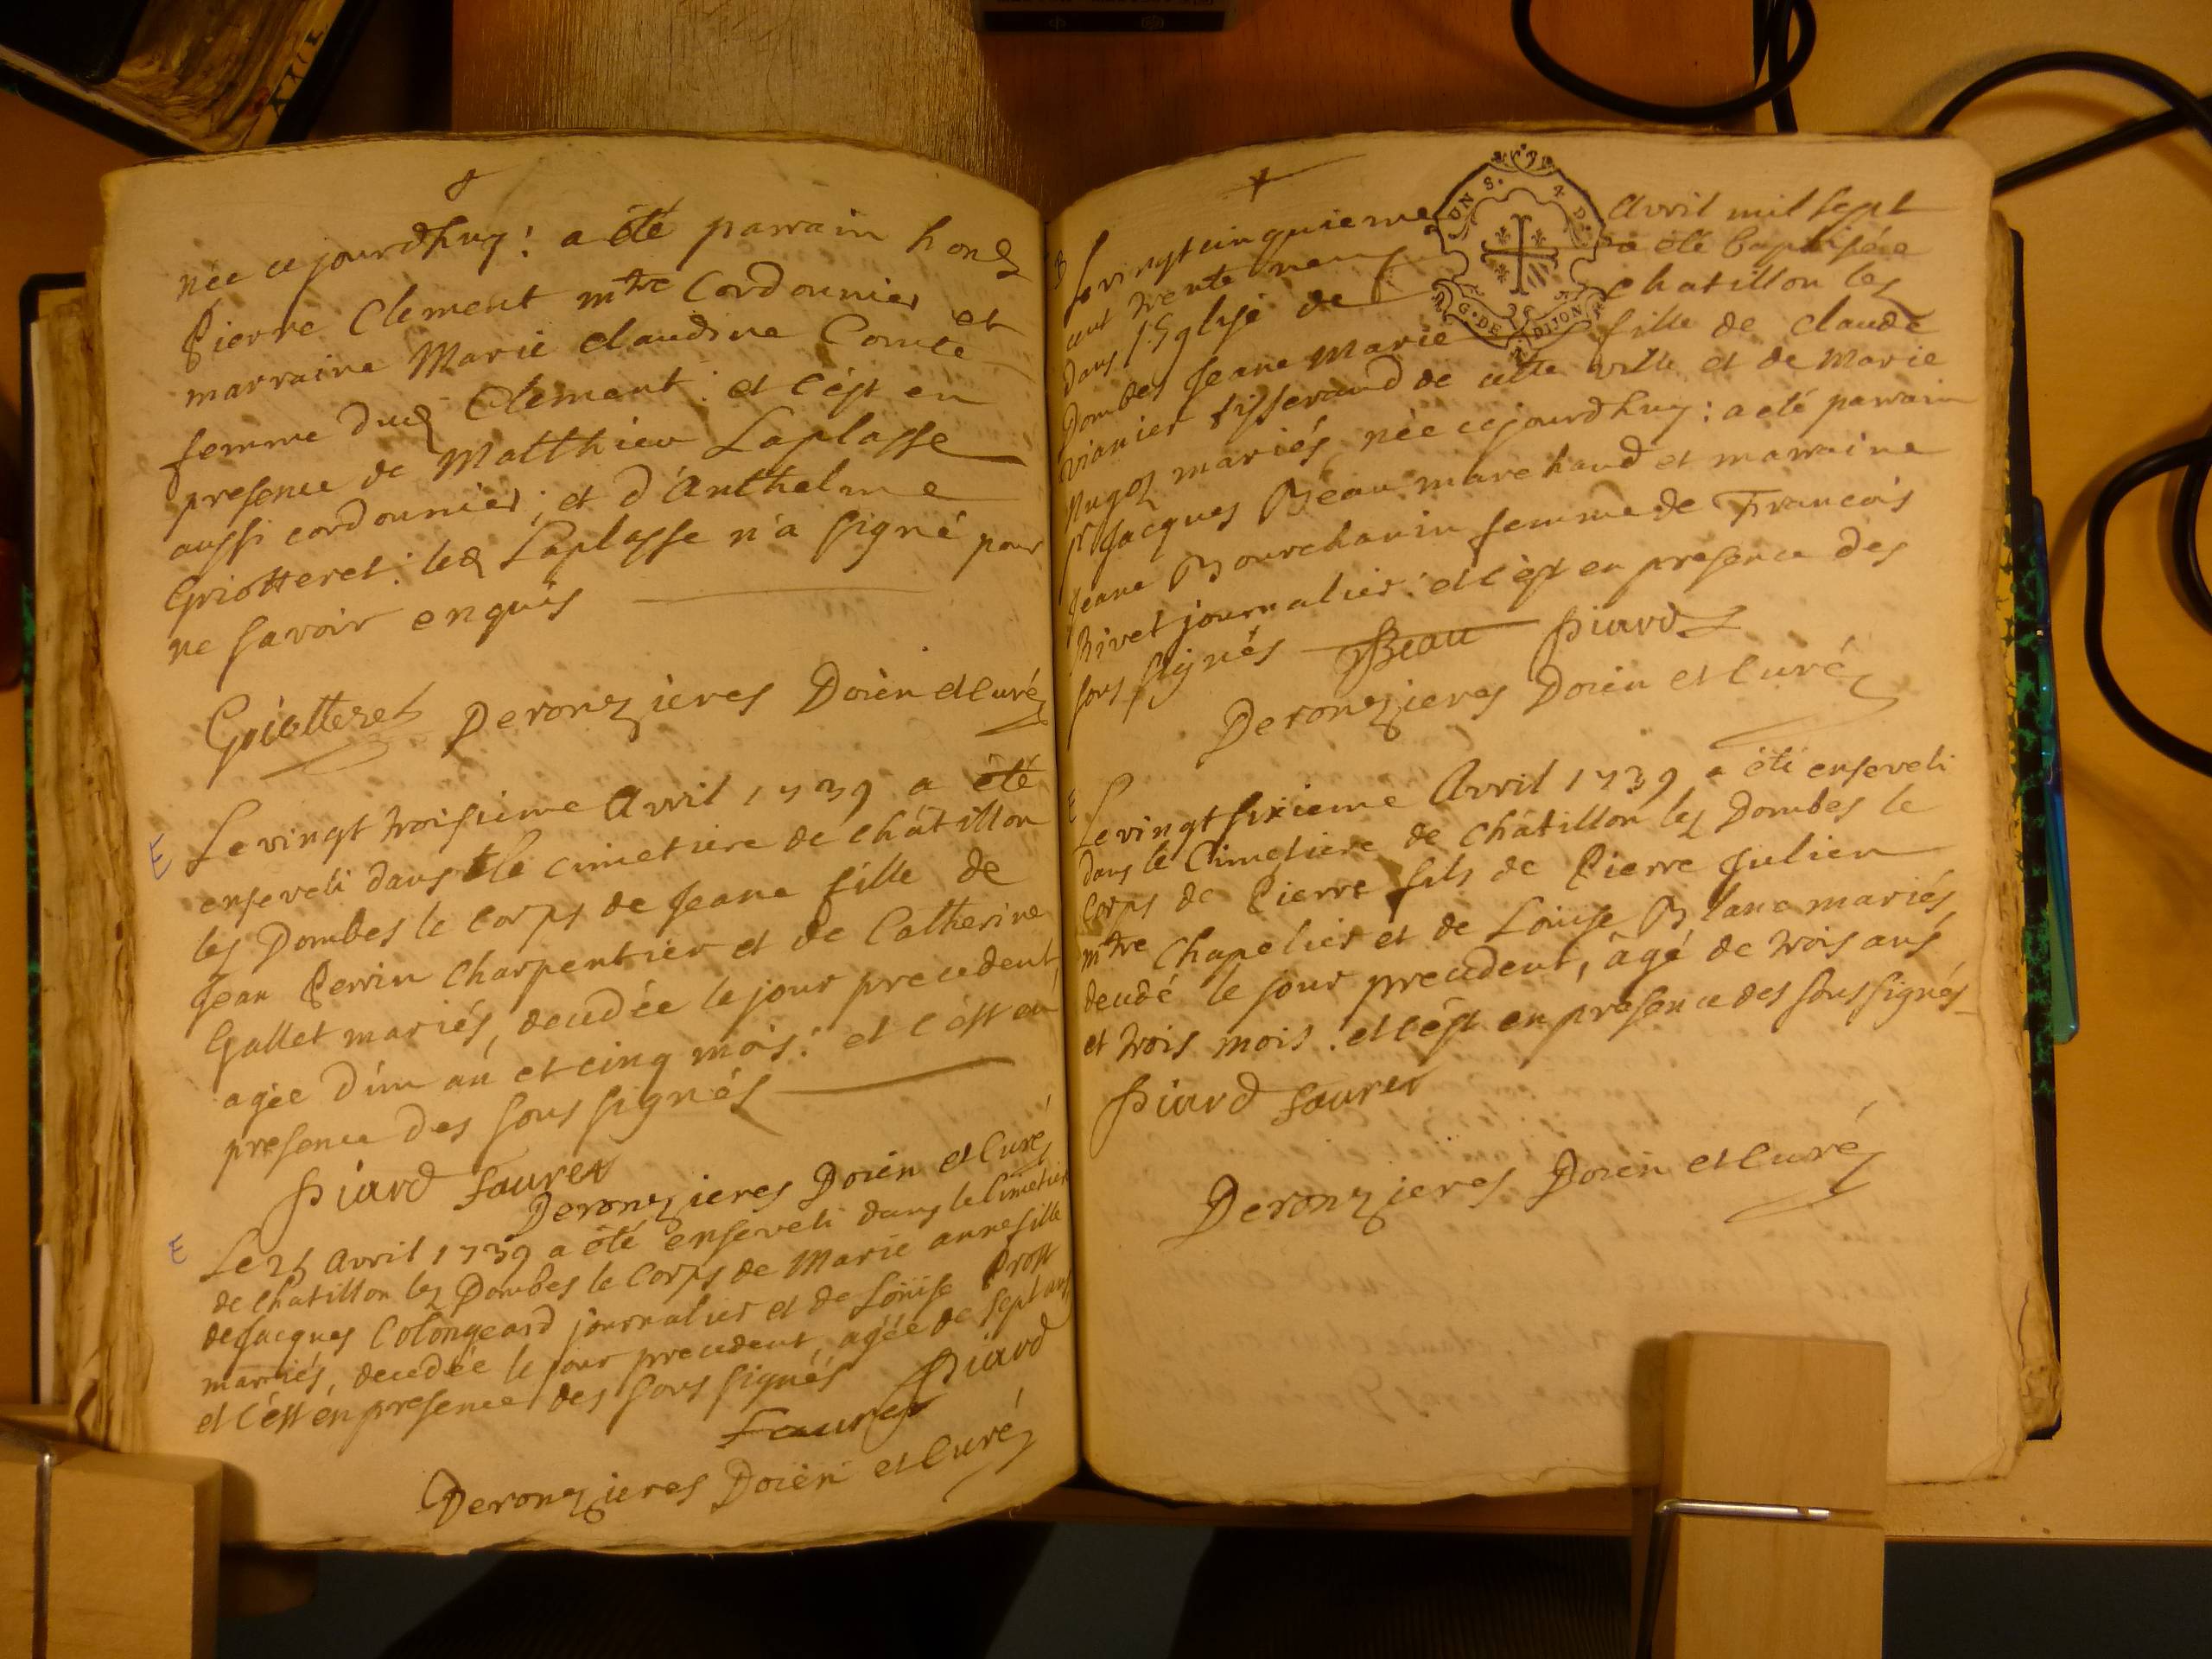 née cejourdhuy : a été parrain hond
Pierre Clement mtre Cordonnier et
marraine Marie claudine Comte
femme dud Clement : et c'est en
presence de Matthieu Laplasse
aussi cordonnier, et d'Anthelme
Griotteret : led Laplasse n'a signé pour
ne savoir enquis
Griotteret Deronzieres Doien et Curé
E
Le vingt troisieme Avril 1739 a été
enseveli dans le cimetiere de châtillon
les Dombes le corps de Jeane fille de
Jean Perrin Charpentier et de Catherine
Gallet mariés, decedée le jour precedent,
agée d'un an et cinq mois : et c'est en
presence des sous signés
Piard Faurer
Deronzieres Doien et Curé
E
Le 25 Avril 1739 a été enseveli dans le Cimetiere
de Chatillon lez Dombes le Corps de Marie anne fille
de Jacques Colongeard journalier et de Loüise Prost
mariés, decedée le jour precedent, agée de sept ans
et c'est en presence des sous signés Piard
Faurer
Deronzieres Doien et Curé
B
Le vingt cinquieme Avril mil sept
cent trente neuf a été baptisée
dans l'Eglise de chatillon les
Dombes Jeane Marie fille de claude
vianier tisserand de cette ville et de Marie
Nugoz mariés, née cejourdhuy : a été parrain
sr Jacques Beau marchand et marraine
Jeane Bourchanin femme de Francois
Rivet journalier : et c'est en presence des
sous signés JBeau Piard
Deronzieres Doien et Curé
UN S. 2 D.
G. DE DIJON
E
Le vingt sixieme Avril 1739 a été enseveli
dans le Cimetiere de Châtillon lez Dombes le
Corps de Pierre fils de Pierre Julien
mtre Chapelier et de Loüise Blanc mariés,
decedé le jour precedent, âgé de trois ans
et trois mois : et c'est en presence des sous signés
Piard Faurer
Deronzieres Doien et Curé